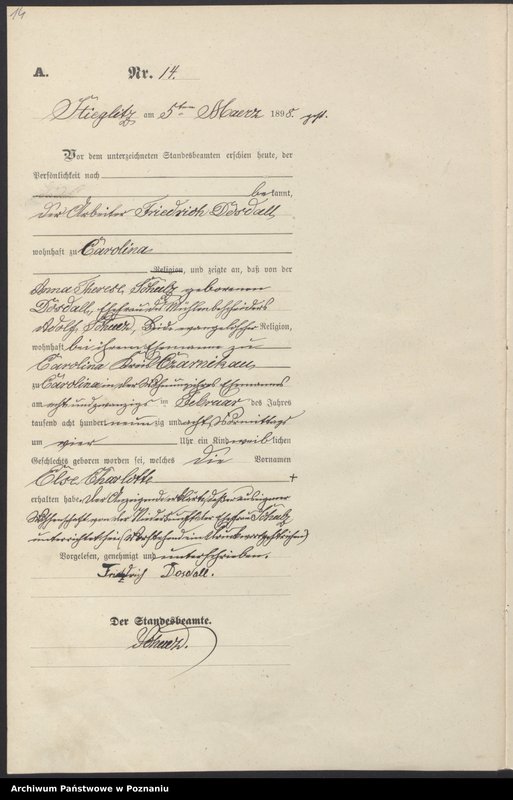 14
A. Nr. 14.
Stieglitz am 5ten Maerz 1898.
Vor dem unterzeichneten Standesbeamten erschien heute, der
Persönlichkeit nach
bekannt,
der Arbeiter Friedrich Dosdall,
wohnhaft zu Carolina
Religion, und zeigte an, daß von der
Anna Therese Schulz geborenen
Dosdall, Ehefrau des
Adolf Schulz, Beide evangelischer Religion,
wohnhaft bei ihrem Ehemanne zu
Carolina Kreis Czarnikau
zu Carolina in der Wohnung ihres Ehemannes
am acht und zwanzigsten Februar des Jahres
tausend acht hundert neunzig und acht Vormittags
um vier Uhr ein Kind weiblichen
Geschlechts geboren worden sei, welches die Vornamen
Else Charlotte +
erhalten habe. Der Anzeigende erklärt, daß er aus eigener
Wissenschaft von der Niederkunft der Ehefrau Schulz
unterrichtet sei. (Vorstehend ein Druckwort gestrichen)
Vorgelesen, genehmigt und unterschrieben.
Friedrich Dosdall.
Der Standesbeamte.
Archiwum Państwowe w Poznaniu